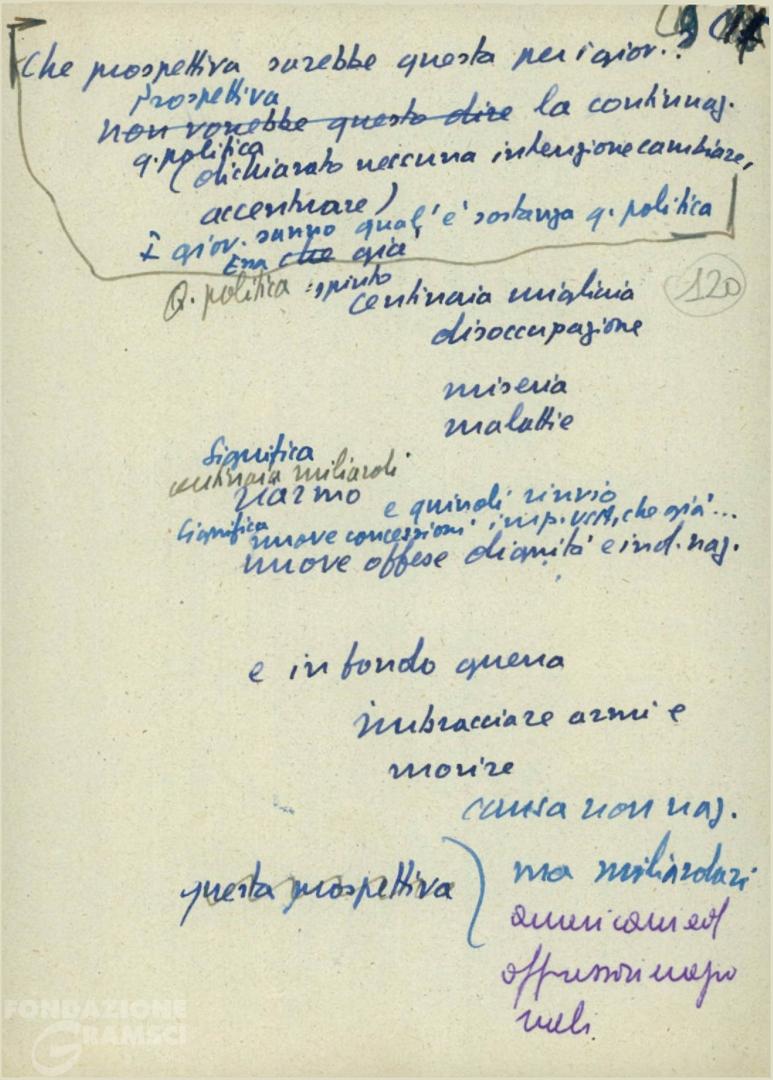 Che prospettiva sarebbe questa per i giov.?
Prospettiva
non vorrebbe questo dire la continuaz.
q. politica
(dichiarato nessuna intenzione cambiare,
accentuare)
I giov. sanno qual'è sostanza q. politica
Essa che già
Q. politica spinto
centinaia migliaia
120
disoccupazione
miseria
malattie
Significa
centinaia miliardi
riarmo e quindi rinvio
Significa nuove concessioni imp. USA, che già...
nuove offese dignità e ind. naz.
e in fondo guerra
imbracciare armi e
morire
causa non naz.
questa prospettiva
ma miliardari
americani ed
oppressori
FONDAZIONE
GRAMSCI